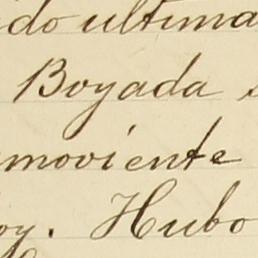 ido ultima
Boyada s
moviente
oy. Hubo